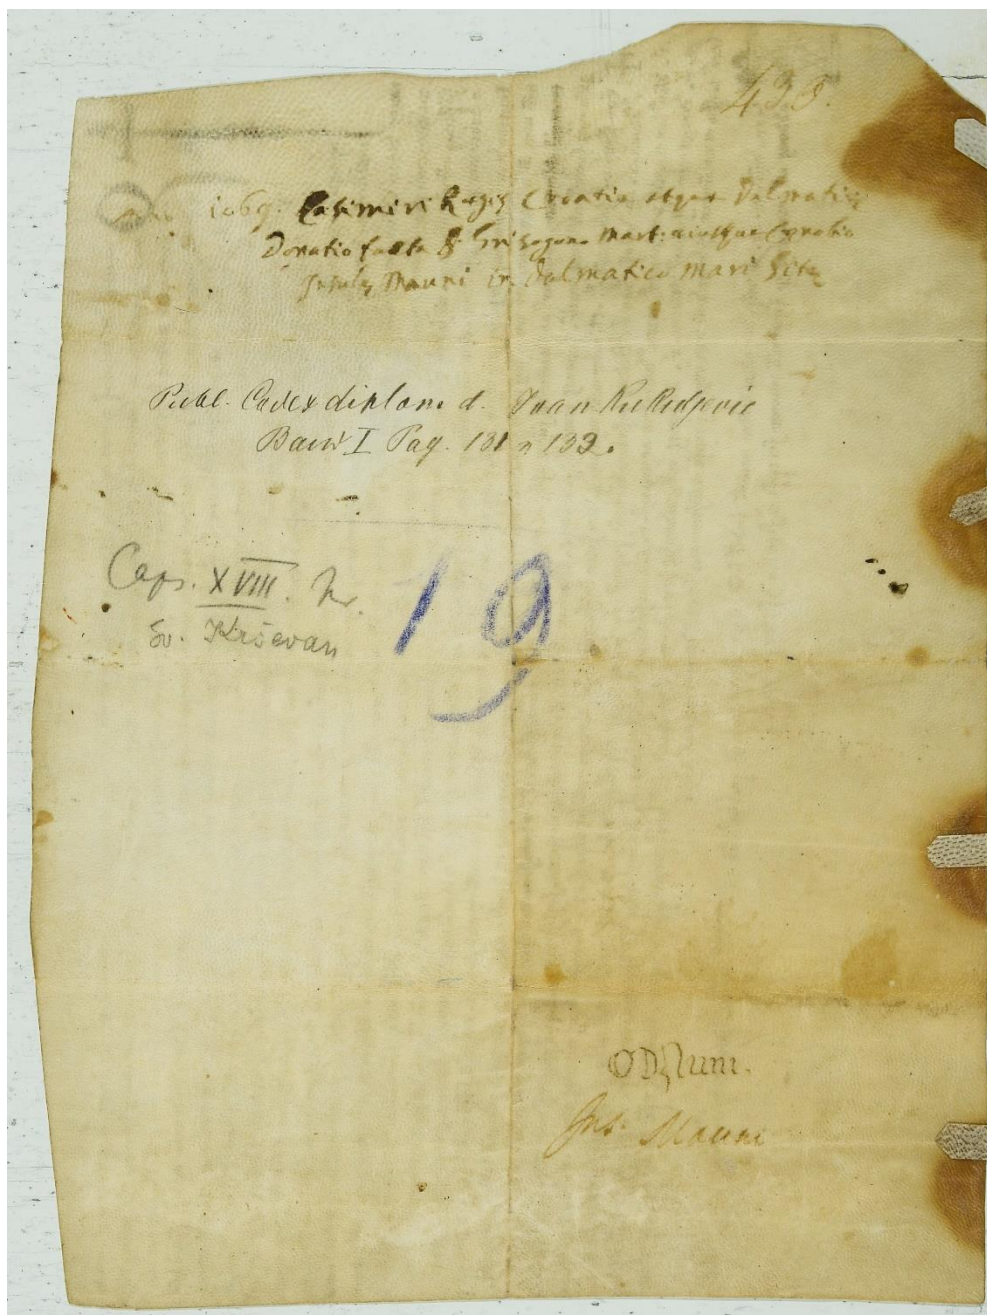 438.
1069. Casimiri Regis Croatie atque Dalmatie
Donatio facta S. Grisogono Mart:
Insulę Mauni in Dalmatico Mari Site
Publ. Codex diplom. d. Ivan Kukuljevic
I Pag. 131 n 132.
Caps. XVIII. Nr. 19
Sv. Krševan
Ins. Mauni